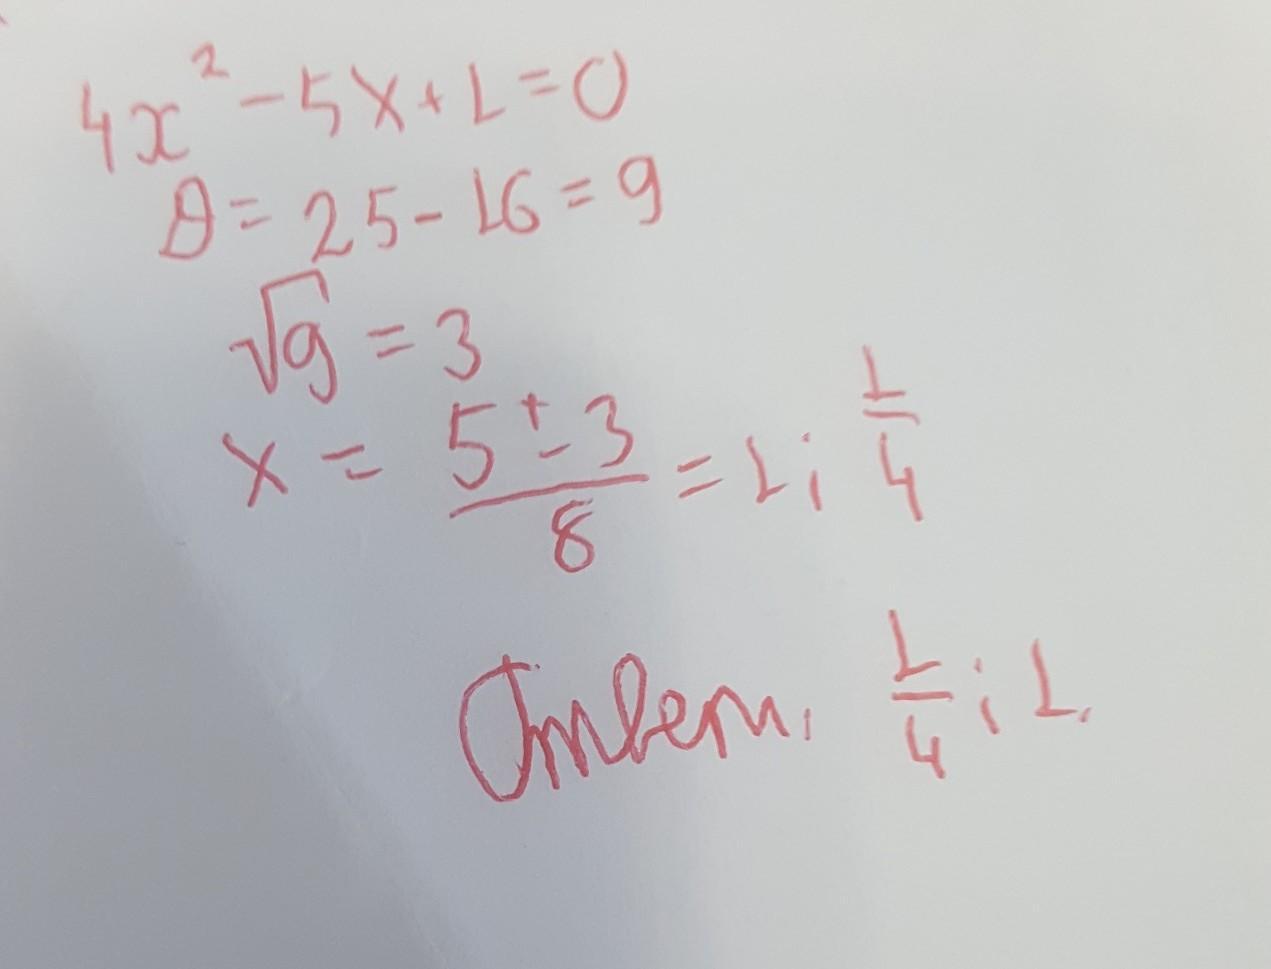 4x² - 5x + 1 = 0
D = 25 - 16 = 9
√9 = 3
x = (5 ± 3)/8 = 1; 1/4
Ответ. 1/4; 1.